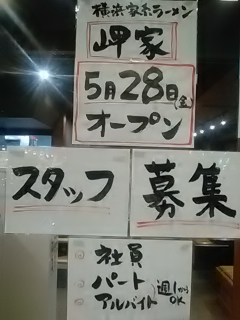 横浜家系ラーメン
岬家
5月28日(金)
オープン
スタッフ
募集
社員
パート
アルバイト
週1から
OK